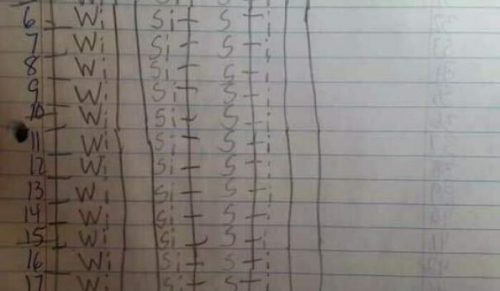 6 Wi Si S
7 Wi Si S
8 Wi Si S
9 Wi Si S
10 Wi Si S
11 Wi Si S
12 Wi Si S
13 Wi Si S
14 Wi Si S
15 Wi Si S
16 Wi Si S
17 Wi Si S